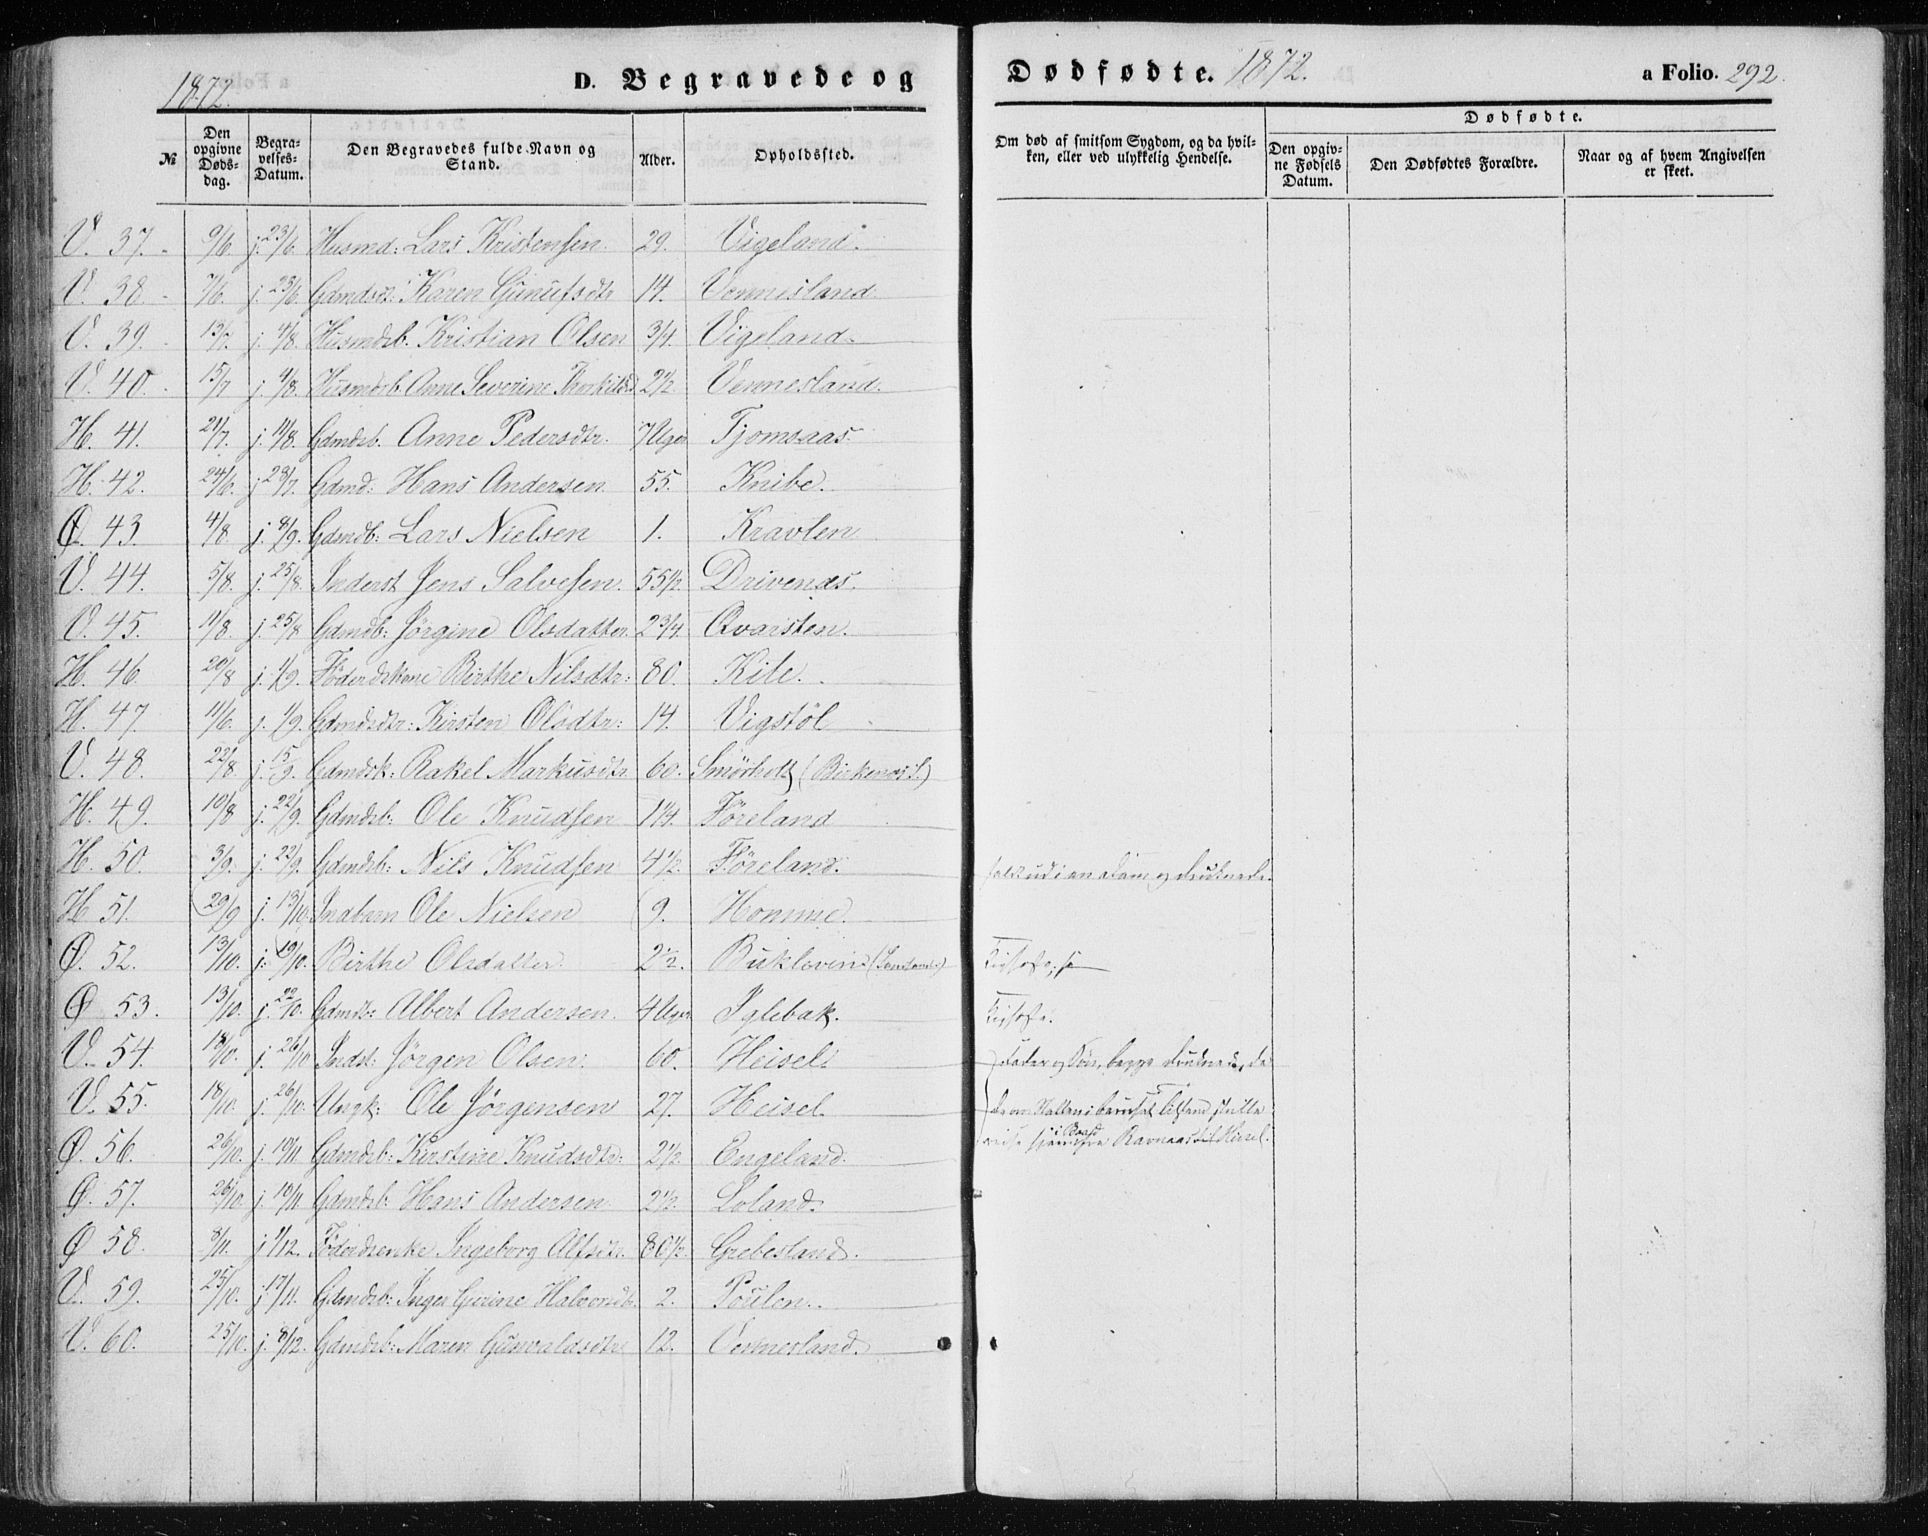 1872.
D. Begravede og
Dødfødte. 1872.
a Folio. 292.
№
Den opgivne Døds-dag.
Begra-velses-Datum.
Den Begravedes fulde Navn og Stand.
Alder.
Opholdssted.
Om død af smitsom Sygdom, og da hvil-ken, eller ved ulykkelig Hendelse.
Dødfødte.
Den opgiv-ne Fødsels Datum.
Den Dødfødtes Forældre.
Naar og af hvem Angivelsen er skeet.
V. 37. 9/6 j. 23/6. Husmd: Lars Kristensen 29. Vigeland.
V. 38. 7/6. j. 23/6 Gdmdsdt: Karen Gunufsdtr 14. Vennesland.
V. 39. 13/7. j. 4/8. Husmdsb. Kristian Olsen 3/4 Vigeland.
V. 40. 15/7 j. 4/8. Husmdsb. Anne Severine Therkilsd 2 1/2. Vennesland.
H. 41. 21/7. j. 11/8. Gdmdsb. Anne Pedersdtr. 7 Uger Tjomsaas.
H. 42. 24/6. j. 23/7. Gdmd: Hans Andersen. 55. Knibe.
Ø. 43. 4/8. j. 8/9. Gdmdb: Lars Nielsen 1. Kravlen
V. 44. 5/8. j. 25/8. Inderst Jens Salvesen. 55 1/2. Drivenæs.
V. 45. 11/8. j. 25/8 Gdmdb: Jørgine Olsdatter. 2 3/4. Qvarsten.
H. 46. 20/8 j. 1/9. Føderdskone Birthe Nilsdtr: 80. Kile.
H. 47. 11/6. j. 1/9. Gdmdsdtr: Kirsten Olsdtr: 14. Vigstöl
V. 48. 22/8. j. 15/9. Gdmdsk: Rakel Markusdtr 60. Smørholt (Birkenæs S.)
H. 49. 10/8 j. 22/9. Gdmdsb: Ole Knudsen 1 1/4. Føreland
H. 50. 3/9. j. 22/9. Gdmdsb: Nils Knudsen 4 1/2. Føreland. faldt ud i en Dam og druknede.
H. 51. 29/9 j. 13/10. Indbarn Ole Nielsen 9. Homme.
Ø. 52. 13/10. j. 19/10. Birthe Olsdatter 2 1/2.
Ø 53. 13/10. j. 22/10. Gdmdsb: Albert Andersen. 4 Uger Iglebak.
V. 54. 18/10. j. 26/10 Indst: Jörgen Olsen. 60. Heisel. Fader og Søn, begge druknede, da
V. 55. 18/10. j. 26/10. Ungk: Ole Jörgensen 27. Heisel
i Baad
Ø. 56. 26/10. j. 10/11 Gdmdsb: Kirstine Knudsdtr: 2 1/2. Engeland.
Ø. 57. 26/10. j. 10/11. Gdmdsb. Hans Andersen 2 1/2. Loland.
Ø 58. 8/11. j 1/12. Føderdsenke Ingeborg Alfsdtr. 80 1/2. Grebesland.
V. 59. 25/10. j. 17/11. Gdmdsb: Inger Gurine Halvorsdtr 2. Poulen.
V. 60. 25/10. j. 8/12. Gdmdsb: Maren Gunvaldsdtr 12. Vennesland.